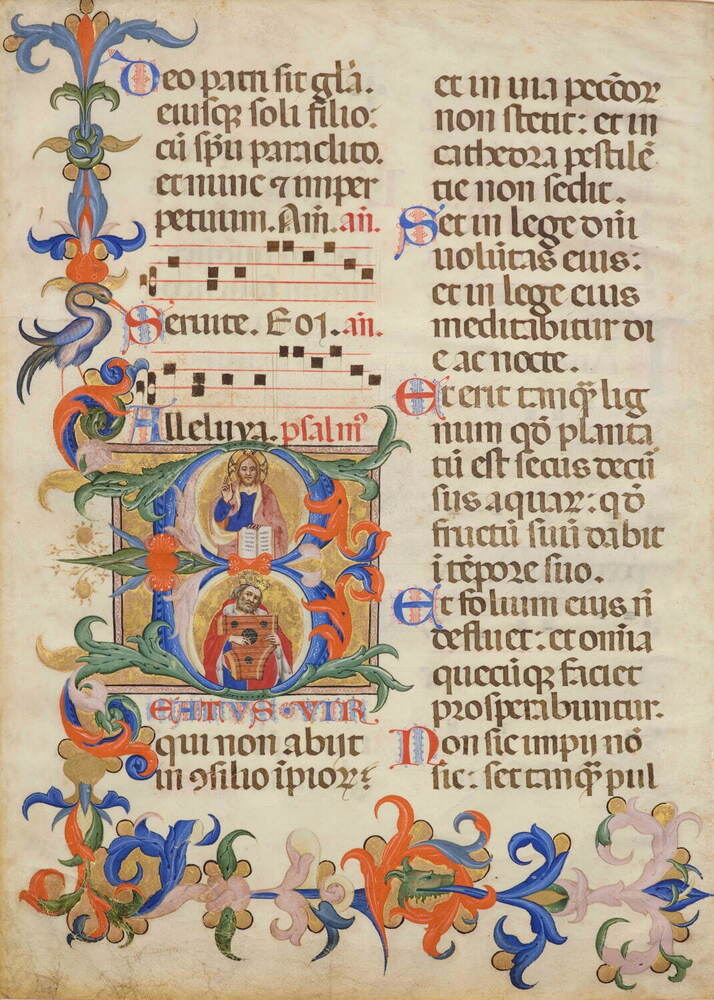 Deo patri sit gl̄a.
eiusq̄ soli filio:
cū sp̄u paraclito.
et nunc ⁊ imper
petuum. Am̄. an̄.
Seruite. E o ı. an̄.
Alleluya. psalmꝰ
BEATVS · VIR
qui non abijt
in ꝯsilio īpioꝝ:
et in uia pecc̄oꝝ
non stetit: et in
cathedra pestilē
tie non sedit.
Set in lege dn̄i
uolūtas eius:
et in lege eius
meditabitur di
e ac nocte.
Et erit tanq̄ lig
num qđ planta
tū est secus decū
sus aquaꝝ: qđ
fructū suū dabit
ī tēpore suo.
Et folium eius n̄
defluet: et om̄ia
quecūq̄ faciet
prosperabuntur.
Non sic impij nō
sic: set tanq̄ pul